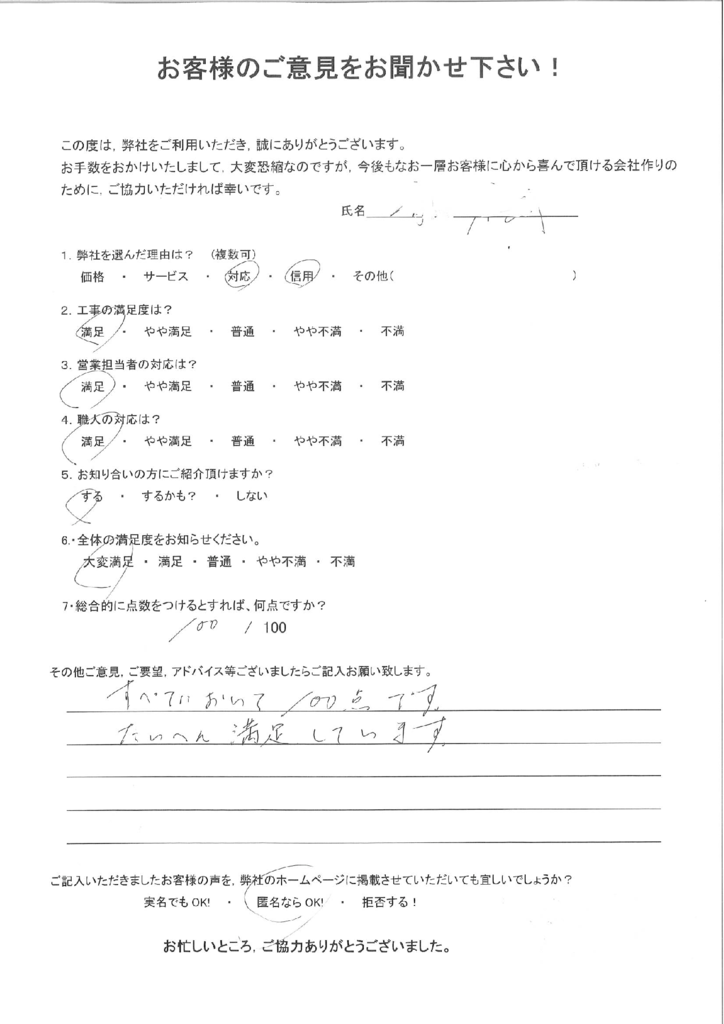 お客様のご意見をお聞かせ下さい！
この度は，弊社をご利用いただき，誠にありがとうございます。
お手数をおかけいたしまして，大変恐縮なのですが，今後もなお一層お客様に心から喜んで頂ける会社作りの
ために，ご協力いただければ幸いです。
氏名
1．弊社を選んだ理由は？　（複数可）
価格　・　サービス　・　対応　・　信用　・　その他（　　　　　）
2．工事の満足度は？
満足　・　やや満足　・　普通　・　やや不満　・　不満
3．営業担当者の対応は？
満足　・　やや満足　・　普通　・　やや不満　・　不満
4．職人の対応は？
満足　・　やや満足　・　普通　・　やや不満　・　不満
5．お知り合いの方にご紹介頂けますか？
する　・　するかも？　・　しない
6.・全体の満足度をお知らせください。
大変満足 ・ 満足 ・ 普通 ・ やや不満 ・ 不満
7・総合的に点数をつけるとすれば、何点ですか？
100 / 100
その他ご意見，ご要望，アドバイス等ございましたらご記入お願い致します。
すべてにおいて 100点です。
たいへん 満足 しています
ご記入いただきましたお客様の声を，弊社のホームページに掲載させていただいても宜しいでしょうか？
実名でもOK!　・　匿名ならOK!　・　拒否する！
お忙しいところ，ご協力ありがとうございました。